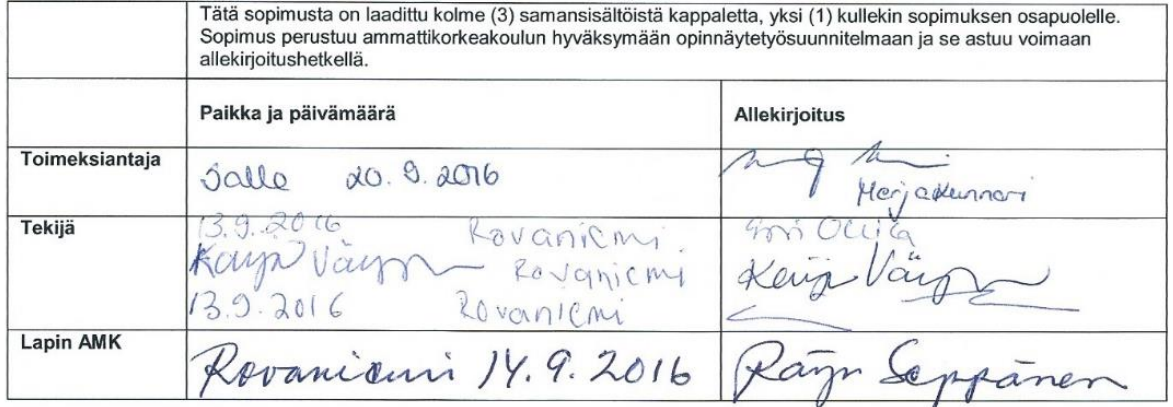 Tätä sopimusta on laadittu kolme (3) samansisältöistä kappaletta, yksi (1) kullekin sopimuksen osapuolelle.
Sopimus perustuu ammattikorkeakoulun hyväksymään opinnäytetyösuunnitelmaan ja se astuu voimaan
allekirjoitushetkellä.
Paikka ja päivämäärä Allekirjoitus
Toimeksiantaja Salla 20.9.2016
Merja Kunnari
Tekijä 13.9.2016 Rovaniemi Ollila
Rovaniemi
13.9.2016 Rovaniemi
Lapin AMK Rovaniemi 14.9.2016 Seppänen